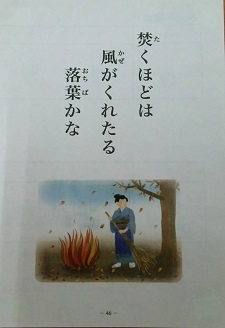 焚くほどは
風がくれたる
落葉かな
- 46 -